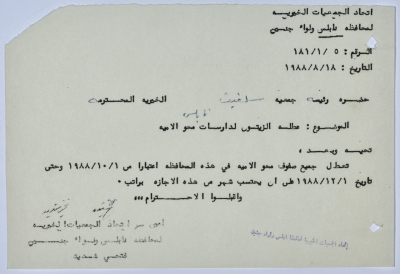 اتحاد الجمعيات الخيريه
لمحافظه نابلس ولواء جنين
الرقم : ١٨١/١/٥
التاريخ : ١٩٨٨/٨/١٨
حضره رئيسة جمعية سلفيت الخيريه المحترمه
نابلس
الموضوع : عطله الزيتون لدارسات محو الاميه
تحيه وبعد ،
تعطل جميع صفوف محو الاميه في هذه المحافظه اعتبارا من ١٩٨٨/١٠/١ وحتى
تاريخ ١٩٨٨/١٢/١ على ان يحتسب شهر من هذه الاجازه براتب .
واقبلوا الاحترام ،،،
امين سر اتحاد الجمعيات الخيريه
لمحافظه نابلس ولواء جنين